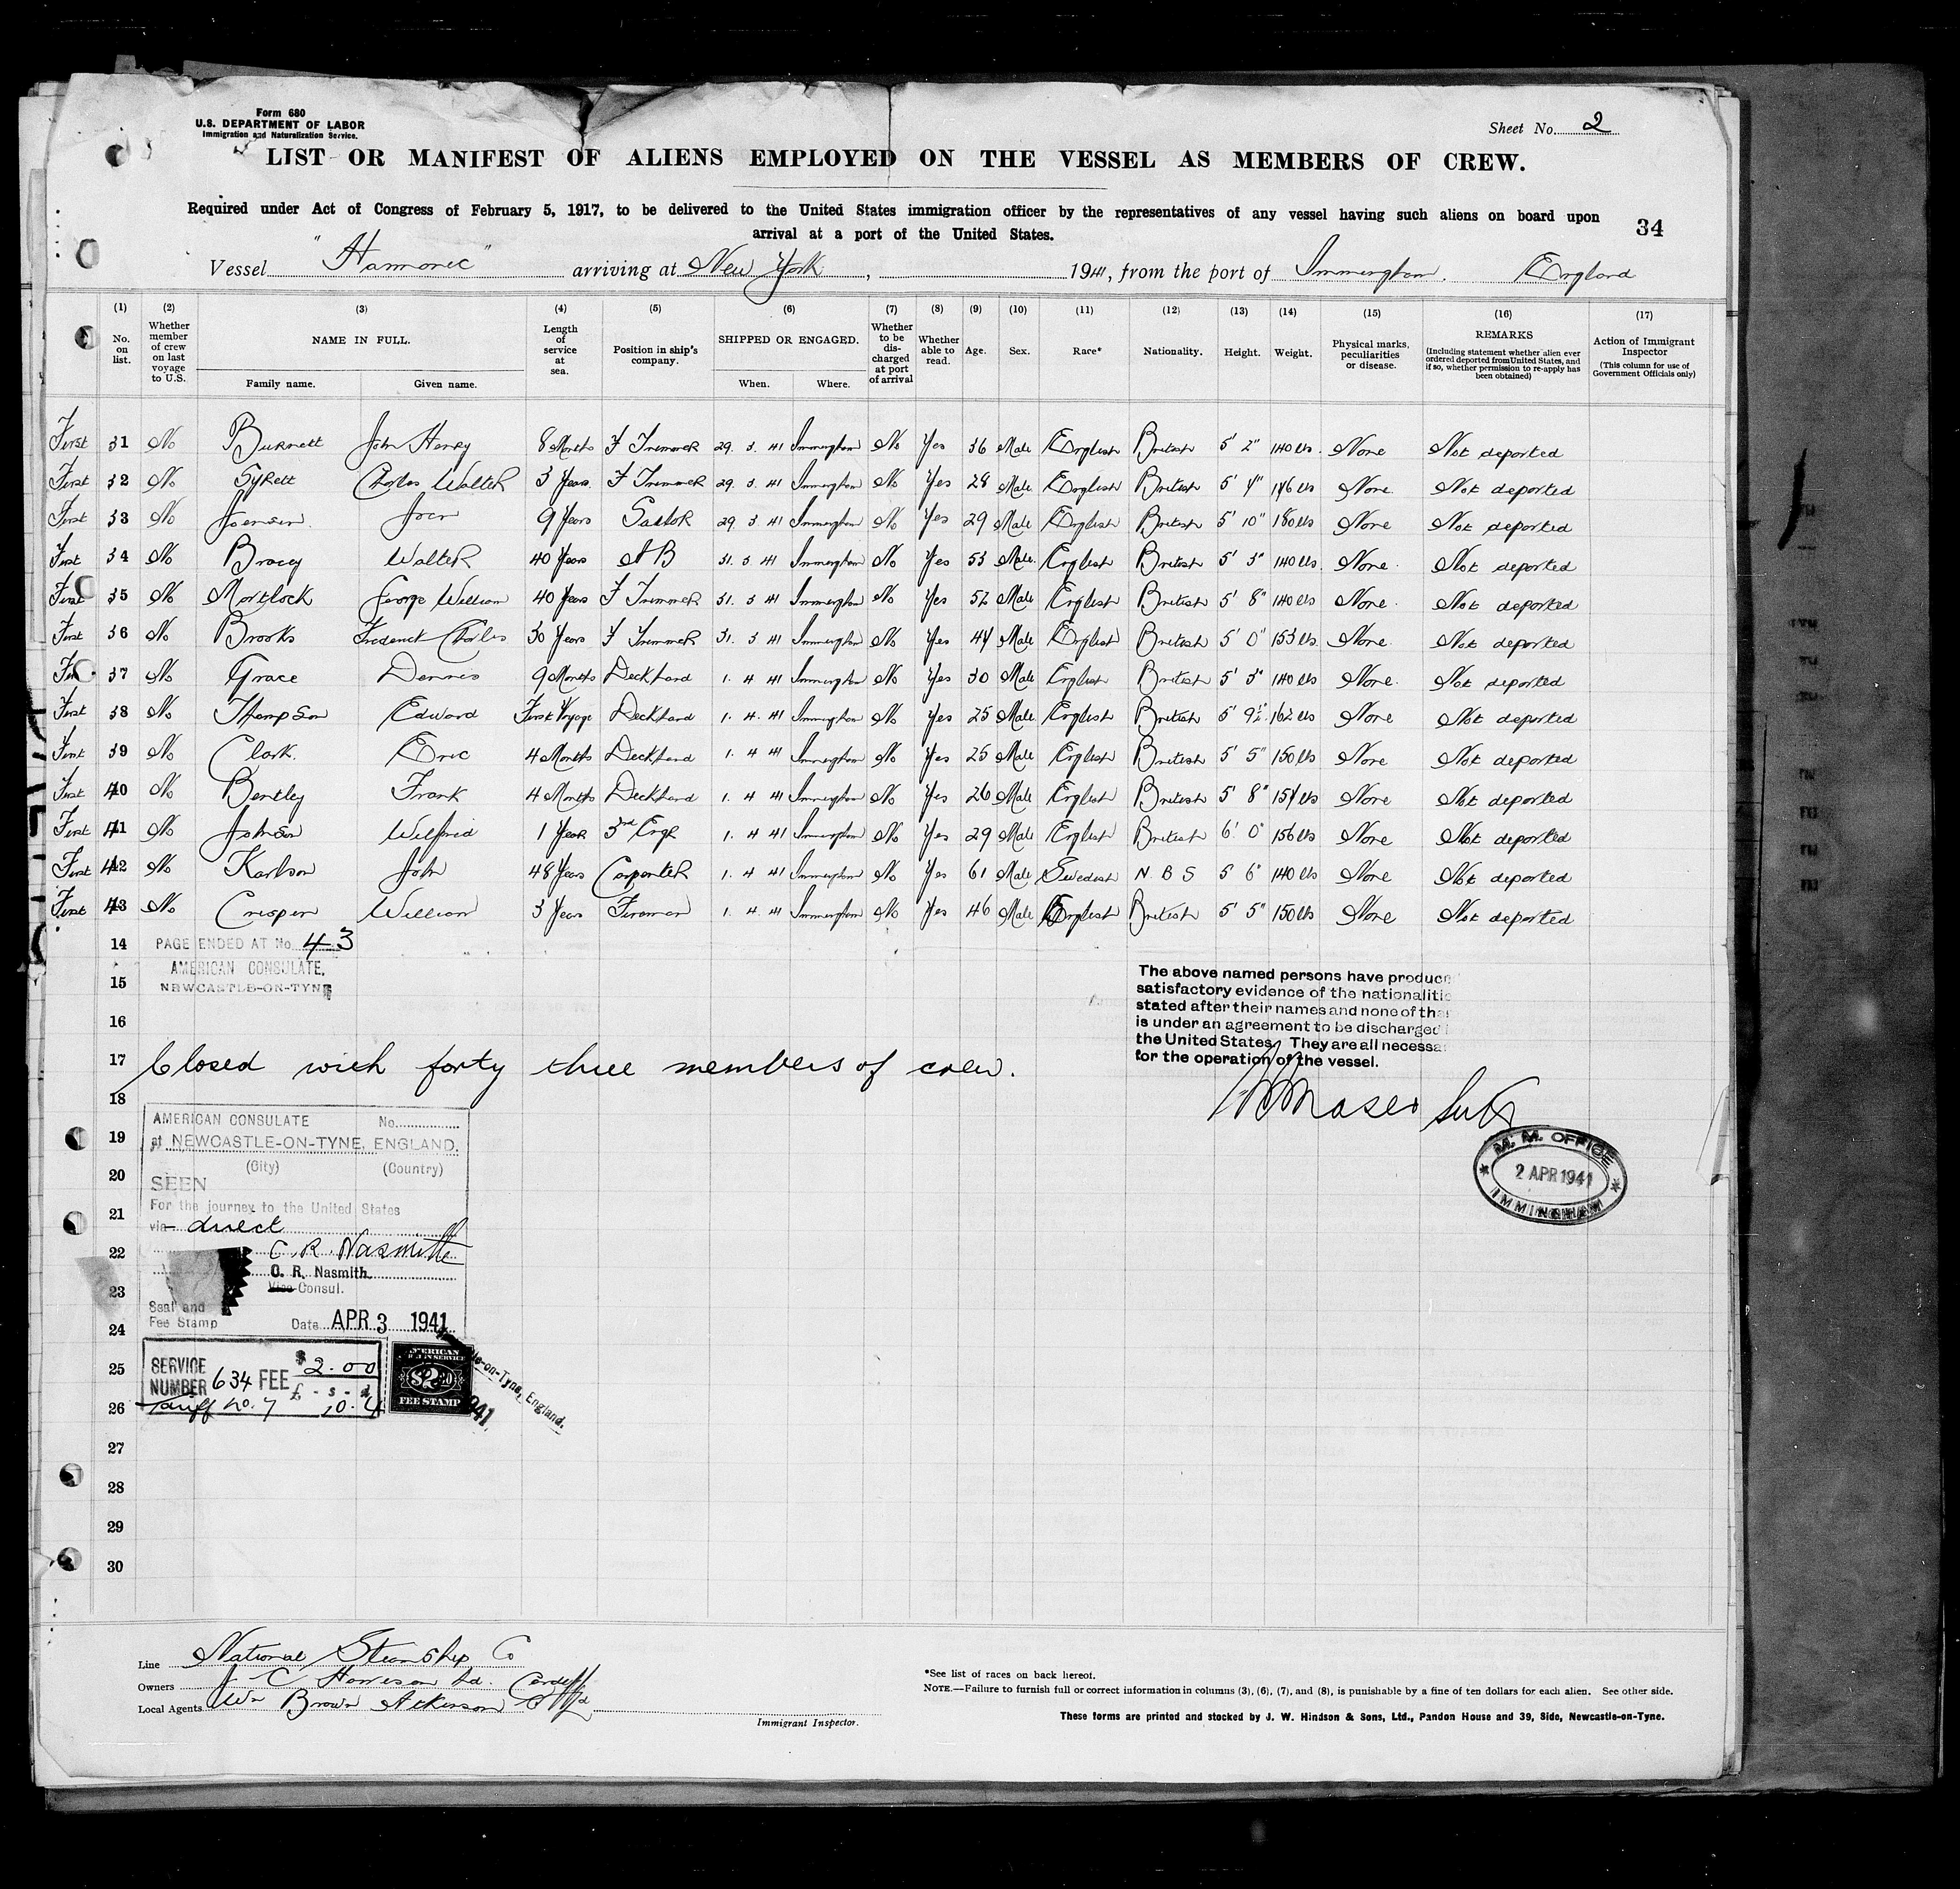 Form 680
U.S. DEPARTMENT OF LABOR
Immigration and Naturalization Service.
Sheet No. 2
LIST OR MANIFEST OF ALIENS EMPLOYED ON THE VESSEL AS MEMBERS OF CREW.
Required under Act of Congress of February 5, 1917, to be delivered to the United States immigration officer by the representatives of any vessel having such aliens on board upon
arrival at a port of the United States.
34
Vessel arriving at New York, 1941, from the port of Immingham. England
(1) (2) (3) (4) (5) (6) (7) (8) (9) (10) (11) (12) (13) (14) (15) (16) (17)
No. on list. Whether member of crew on last voyage to U.S. NAME IN FULL. Family name. Given name. Length of service at sea. Position in ship's company. SHIPPED OR ENGAGED. When. Where. Whether to be discharged at port of arrival Whether able to read. Age. Sex. Race* Nationality. Height. Weight. Physical marks, peculiarities or disease. REMARKS (Including statement whether alien ever ordered deported from United States, and if so, whether permission to re-apply has been obtained) Action of Immigrant Inspector (This column for use of Government Officials only)
First 31 No Burnett John Henry 8 Months F Trimmer 29. 3. 41 Immingham No Yes 36 Male English British 5' 2" 140 lbs. None Not deported
First 32 No Sykett Charles Walter 3 Years. F Trimmer 29. 3. 41 Immingham No Yes 28 Male English British 5' 4" 146 lbs None. Not deported
First 33 No Joensen. 9 Years Sailor 29. 3. 41 Immingham No Yes 29 Male English British 5' 10" 180 lbs None Not deported
First 34 No Bracey Walter 40 Years AB 31. 3. 41 Immingham No Yes 53 Male. English British 5' 3" 140 lbs. None. Not deported
First 35 No Mortlock George William 40 Years F Trimmer 31. 3. 41 Immingham No Yes 52 Male English British 5' 8" 140 lbs None. Not deported
First 36 No Brooks Frederick Charles 30 Years F Trimmer 31. 3. 41 Immingham No Yes 44 Male English British 5' 0" 153 lbs. None. Not deported
37 No Grace Dennis 9 Months Deckhand 1. 4 41 Immingham No Yes 30 Male English British 5' 3" 140 lbs None. Not deported
First 38 No Thompson Edward First Voyage Deckhand 1. 4. 41 Immingham No Yes 25 Male English British 5' 9½" 162 lbs None Not deported
First 39 No Clark. Eric 4 Months Deckhand 1. 4 41 Immingham No Yes 25 Male English British 5' 5" 150 lbs None Not deported
First 40 No Bentley Frank 4 Months Deckhand 1. 4 41 Immingham No Yes 26 Male English British 5' 8" 154 lbs None Not deported
First 41 No Johnson Wilfrid 1 Year 3rd Engr 1. 4 41 Immingham No Yes 29 Male English British 6' 0" 156 lbs None Not deported
First 42 No Karlson John 48 Years Carpenter 1. 4 41 Immingham No Yes 61 Male Swedish N. B S 5' 6" 140 lbs None Not deported
First 43 No Crispin William 3 Years Fireman 1. 4 41 Immingham No Yes 46 Male English British 5' 5" 150 lbs None Not deported
14 PAGE ENDED AT No. 43
AMERICAN CONSULATE,
15 NEWCASTLE-ON-TYNE
The above named persons have produce
satisfactory evidence of the nationalitie
stated after their names and none of the
is under an agreement to be discharged
the United States. They are all necessa
for the operation of the vessel.
16
17 Closed with forty three members of crew.
18
AMERICAN CONSULATE No.
19 at NEWCASTLE-ON-TYNE, ENGLAND.
(City) (Country)
20 SEEN
For the journey to the United States
21 via direct
22 C. R. Nasmith
C. R. Nasmith.
23 Vice Consul.
Seal and
Fee Stamp
24 Date APR 3 1941
M. M. OFFICE
2 APR 1941
IMMINGHAM
25 SERVICE NUMBER 634 FEE $ 2.00
£ - s - d
26 Tariff no. 7 10.4
FEE STAMP
-on-Tyne, England.
27
28
29
30
Line National Steamship Co
Owners J C Harrison Ld. Cardiff
Local Agents Wm Brown Atkinson
Immigrant Inspector.
*See list of races on back hereof.
NOTE.—Failure to furnish full or correct information in columns (3), (6), (7), and (8), is punishable by a fine of ten dollars for each alien. See other side.
These forms are printed and stocked by J. W. Hindson & Sons, Ltd., Pandon House and 39, Side, Newcastle-on-Tyne.